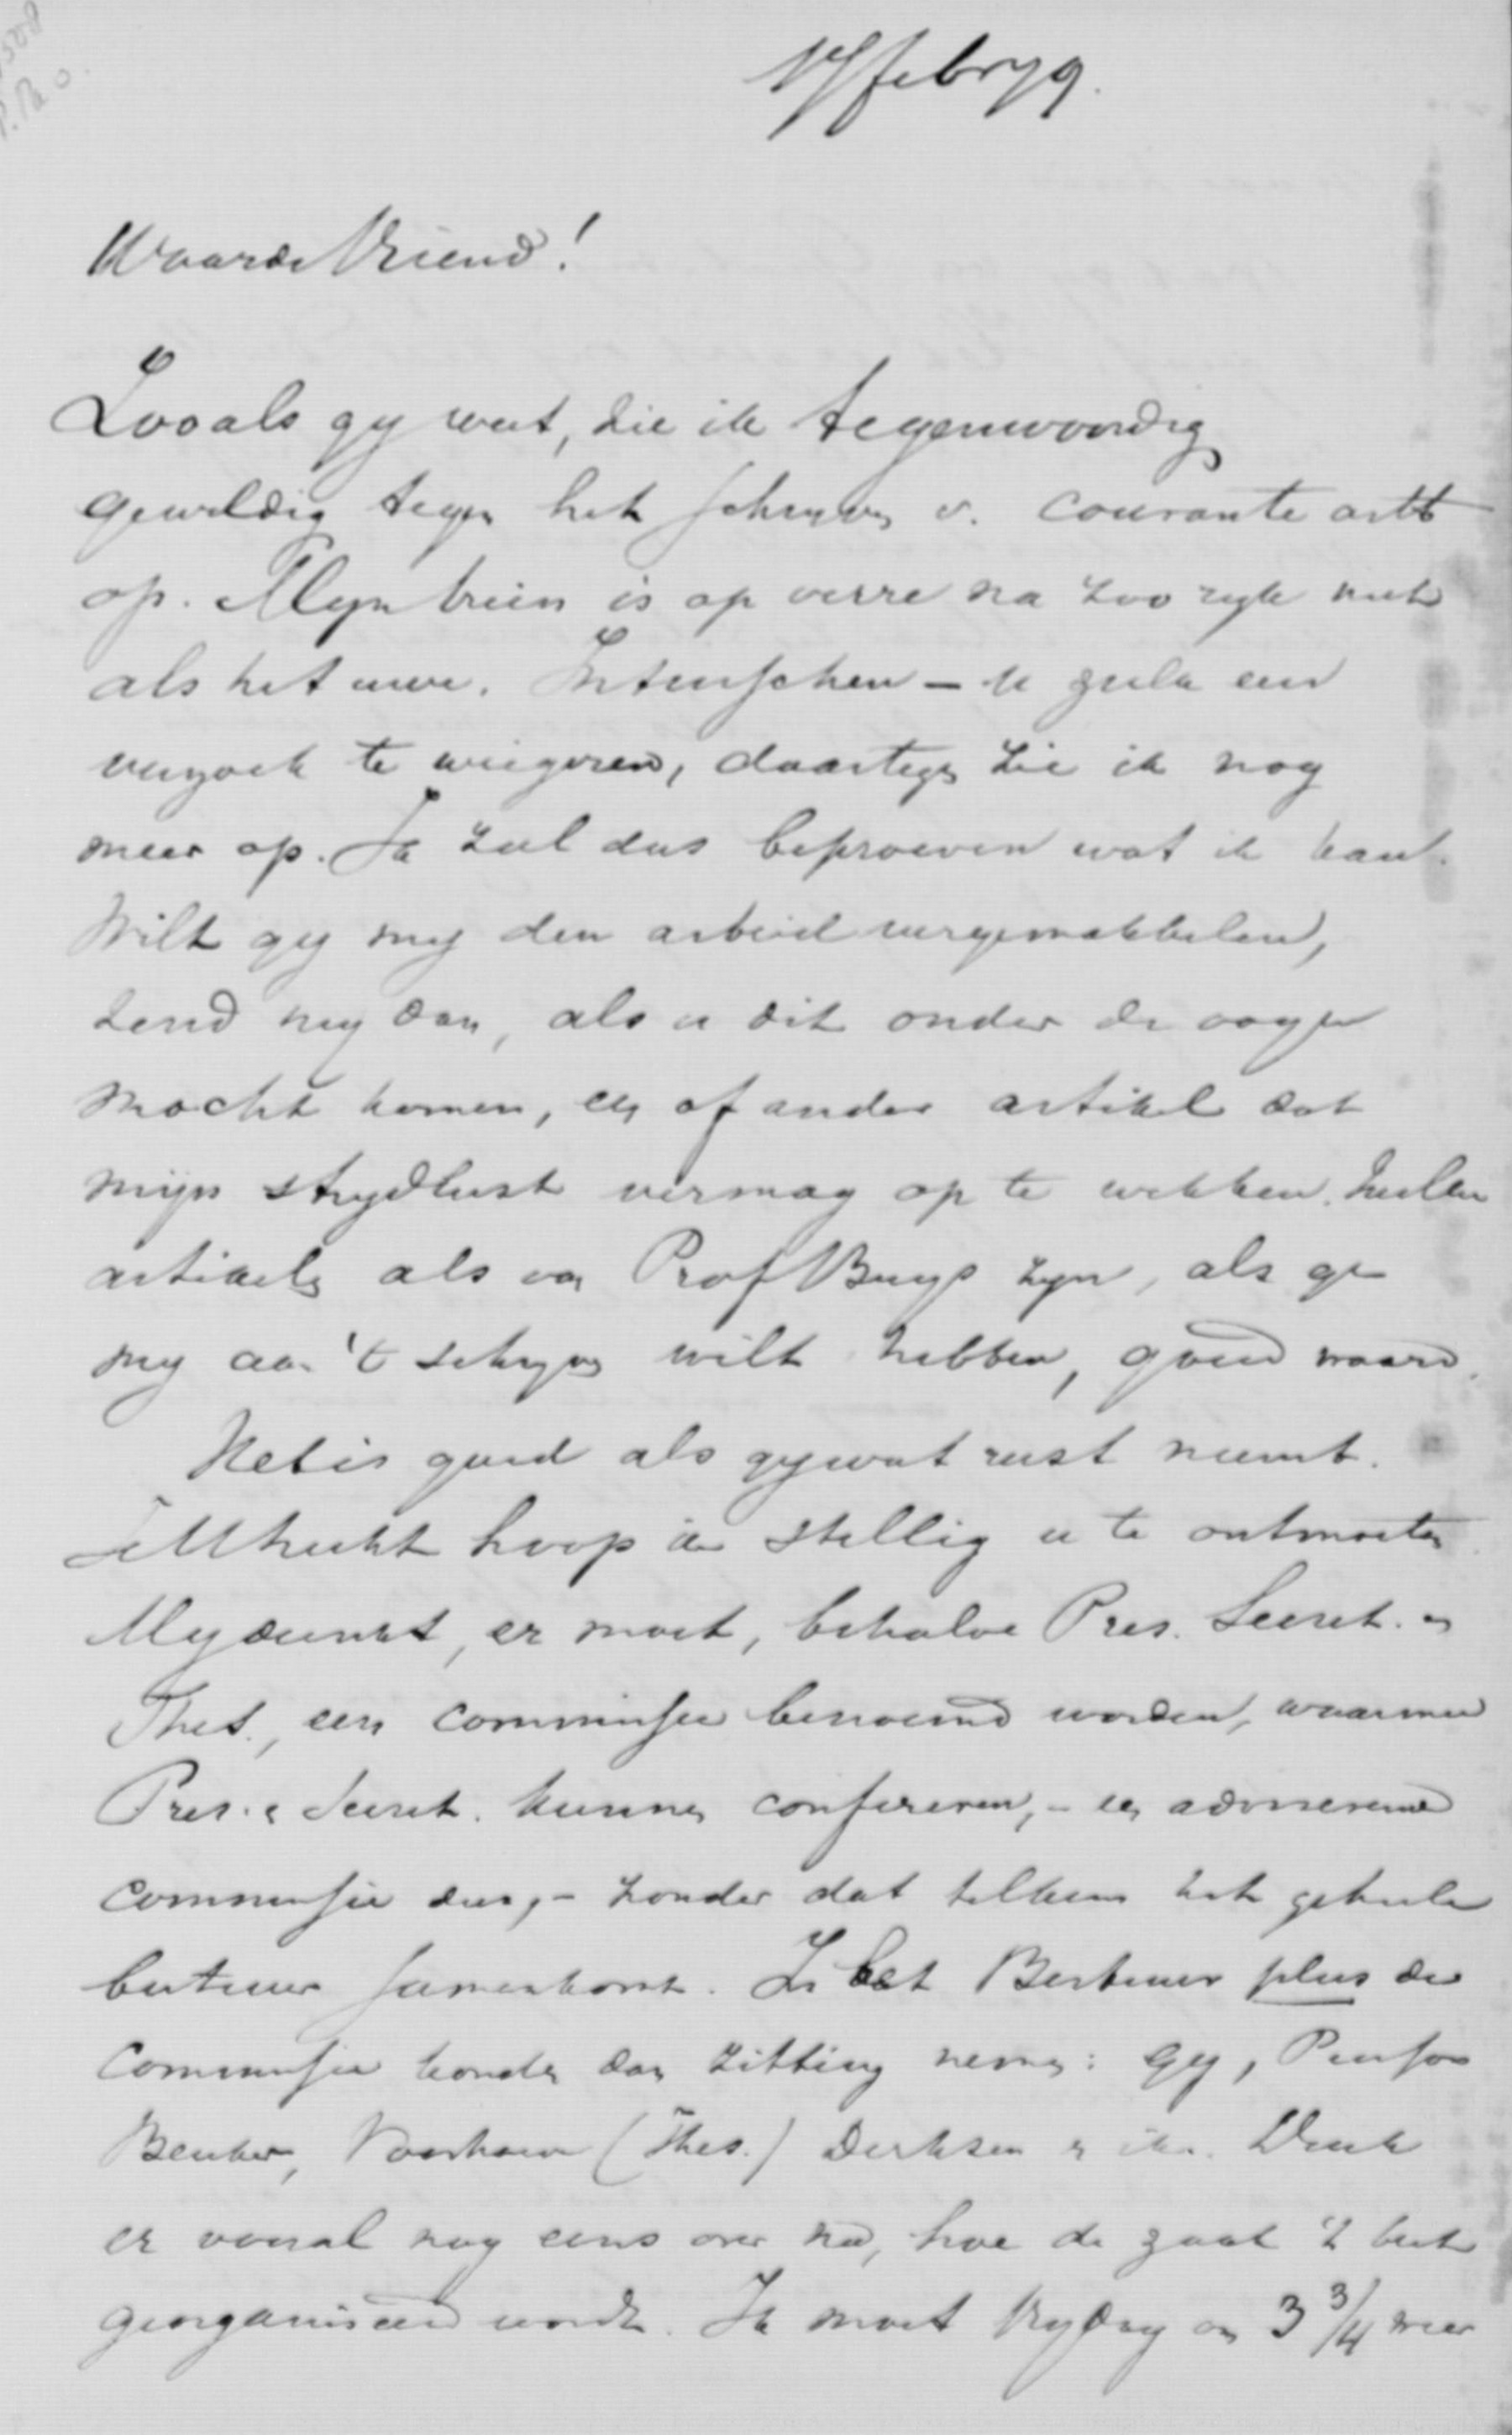 17 febr 79.
Waarde Vriend!
Zooals gy weet, zie ik tegenwoordig
geweldig tegen het schryven v. courante artt
op. Myn brein is op verre na zoo ryk niet
als het uwe. Intusschen – u zulk een
verzoek te weigeren, daartegen zie ik nog
meer op. Ik zal dus beproeven wat ik kan.
Wilt gy my den arbeid vergemakkelen,
zend my dan, als u dit onder de oogen
mocht komen, een of ander artikel dat
mijn strydlust vermag op te wekken. Zulke
artikels als van Prof Buys zyn, als ge
my aan 't schryven wilt hebben, goud waard.
Het is goed als gy wat rust neemt.
Te Utrecht hoop ik stellig u te ontmoeten
My dunkt, er moet, behalve Pres. Secret. en
Thes., een commissie benoemd worden, waarmee
Pres. & Secret. kunnen confereren, – een adviserende
commissie dus, – zonder dat telkens het geheele
bestuur samenkomt. In het Bestuur plus de
Commissie konden dan zitting nemen: gy, Pierson
Beuker, Voorhoeve (Thes.) Derksen & ik. Denk
er vooral nog eens over na, hoe de zaak 't best
georganiseerd wordt. Ik moet Vrydag om 3 3/4 weer